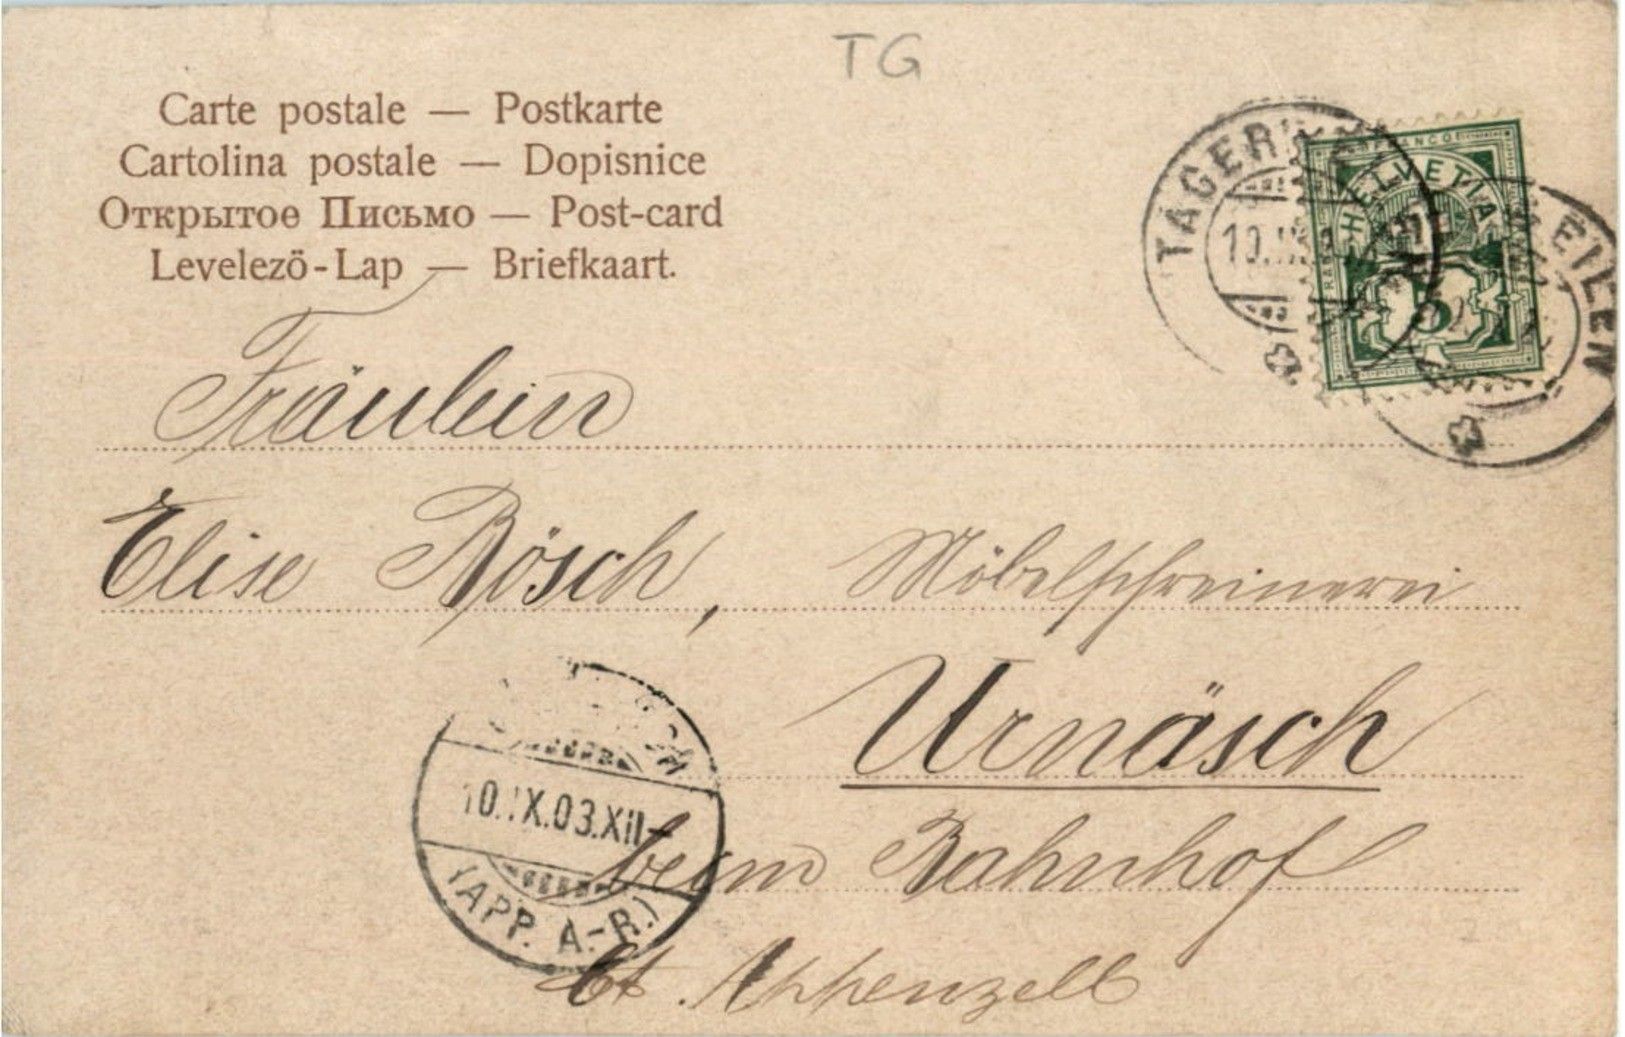 TG
Carte postale — Postkarte
Cartolina postale — Dopisnice
Открытое Письмо — Post-card
Levelezö-Lap — Briefkaart.
FRANCO
HELVETIA
5
10.IX.
Fräulein
Elise Bösch, Möbelschreinerei
Urnäsch
beim Bahnhof
Ct. Appenzell
10.IX.03.XII-
(APP. A.-R.)